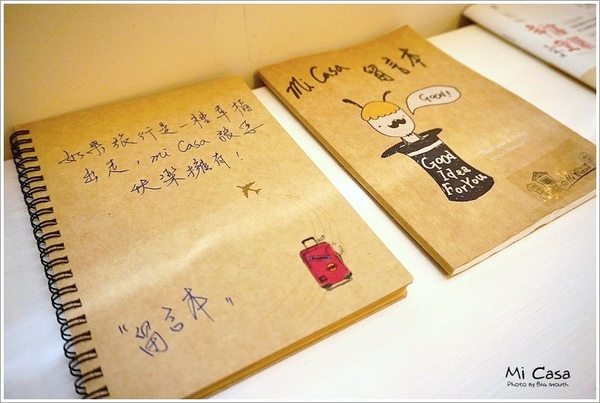 如果旅行是一種幸福
出走，mi Casa 跟子
快樂擁有！
"留言本"
mi Casa 留言本
Good!
Good
Idea
For You
Mi Casa
Photo by Big mouth.